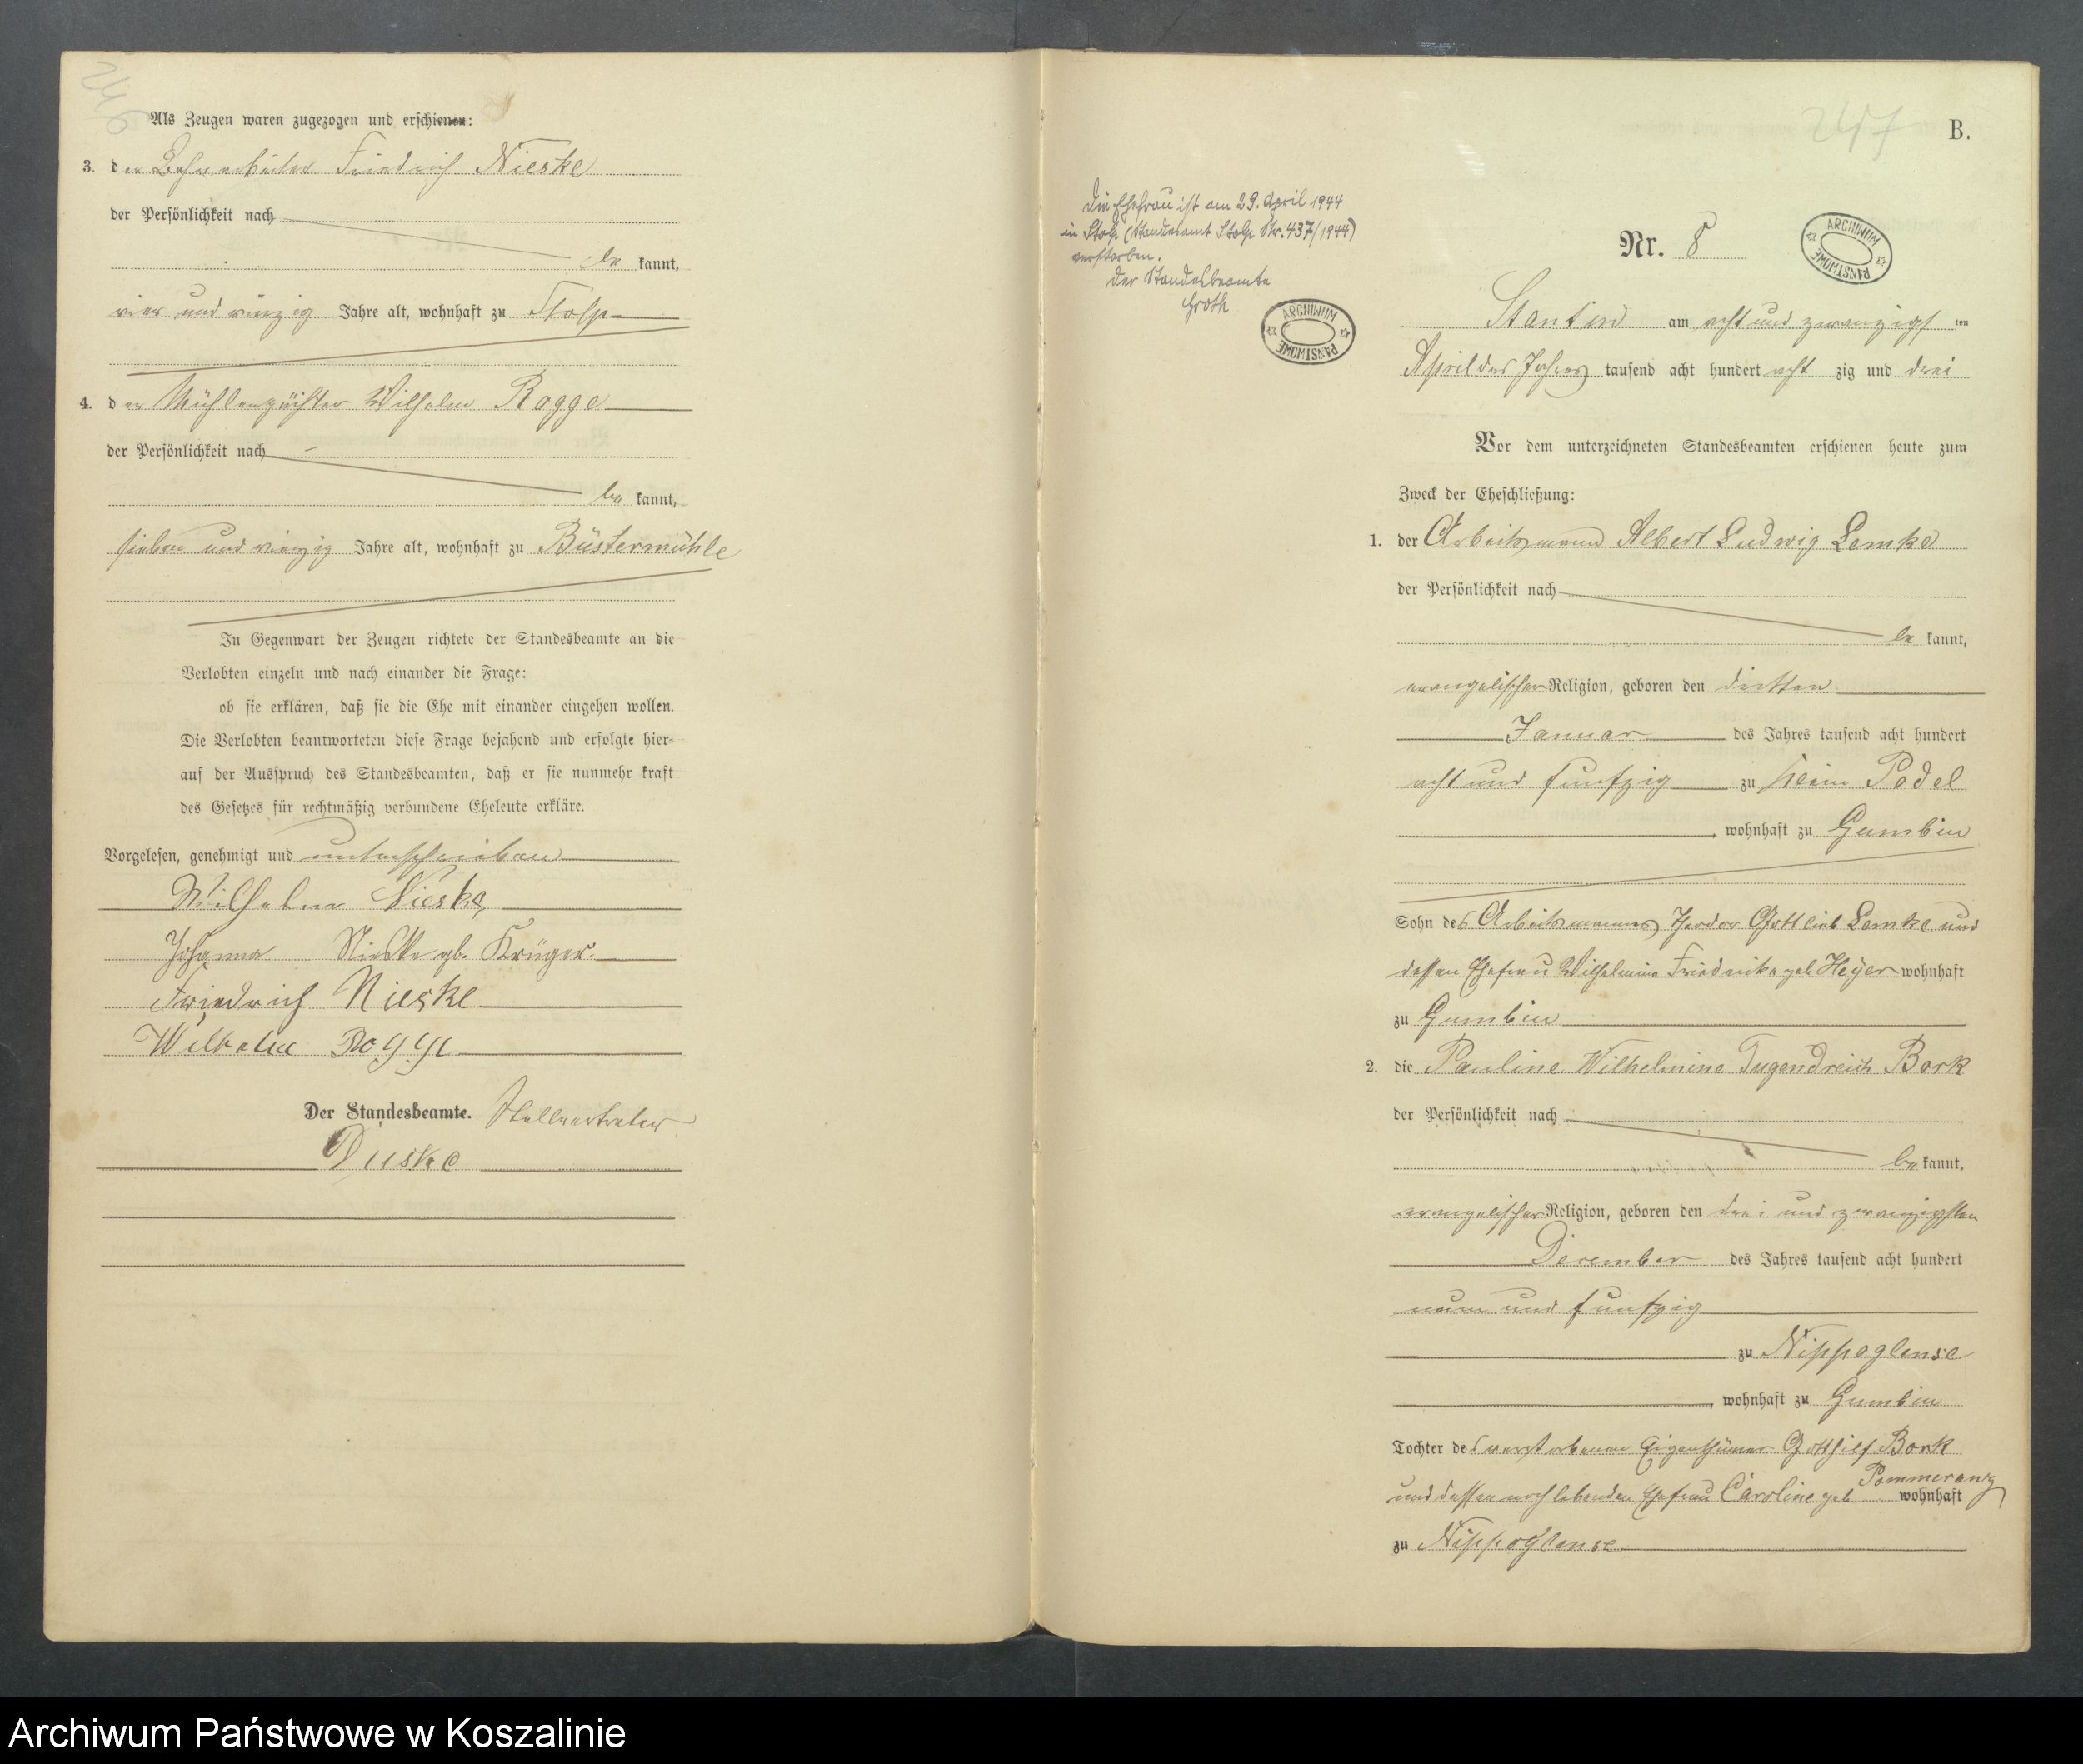 246
Als Zeugen waren zugezogen und erschienen:
3. der Bahnarbeiter Friedrich Nieske
der Persönlichkeit nach
be kannt,
vier und vierzig Jahre alt, wohnhaft zu Stolp
4. der Mühlenpächter Wilhelm Rogge
der Persönlichkeit nach
be kannt,
sieben und vierzig Jahre alt, wohnhaft zu Büstermühle
In Gegenwart der Zeugen richtete der Standesbeamte an die
Verlobten einzeln und nach einander die Frage:
ob sie erklären, daß sie die Ehe mit einander eingehen wollen.
Die Verlobten beantworteten diese Frage bejahend und erfolgte hier-
auf der Ausspruch des Standesbeamten, daß er sie nunmehr kraft
des Gesetzes für rechtmäßig verbundene Eheleute erkläre.
Vorgelesen, genehmigt und unterschrieben
Wilhelm Nieske
Johanna Nieske gb. Krüger.
Friedrich Nieske
Wilhelm Rogge
Der Standesbeamte. Stellvertreter
247
B.
Die Ehefrau ist am 29. April 1944
in Stolp (Standesamt Stolp Nr. 437/1944)
verstorben.
Der Standesbeamte
Groth
ARCHIWUM PAŃSTWOWE
Nr. 8
ARCHIWUM PAŃSTWOWE
Stantin am acht und zwanzigsten
April des Jahres tausend acht hundert acht zig und drei
Vor dem unterzeichneten Standesbeamten erschienen heute zum
Zweck der Eheschließung:
1. der Arbeitsmann Albert Ludwig Lemke
der Persönlichkeit nach
be kannt,
evangelischer Religion, geboren den dritten
Januar des Jahres tausend acht hundert
acht und funfzig zu Klein Podel
, wohnhaft zu Gumbin
Sohn des Arbeitsmannes Theodor Gottlieb Lemke und
dessen Ehefrau Wilhelmine Friederike geb Heyer wohnhaft
zu Gumbin
2. die Pauline Wilhelmine Tugendreich Bork
der Persönlichkeit nach
be kannt,
evangelischer Religion, geboren den drei und zwanzigsten
December des Jahres tausend acht hundert
neun und funfzig
zu Nippoglense
, wohnhaft zu Gumbin
Tochter des verstorbenen Eigenthümer Gotthilf Bork
und dessen noch lebenden Ehefrau Caroline geb Pommeranz wohnhaft
zu Nippoglense
Archiwum Państwowe w Koszalinie